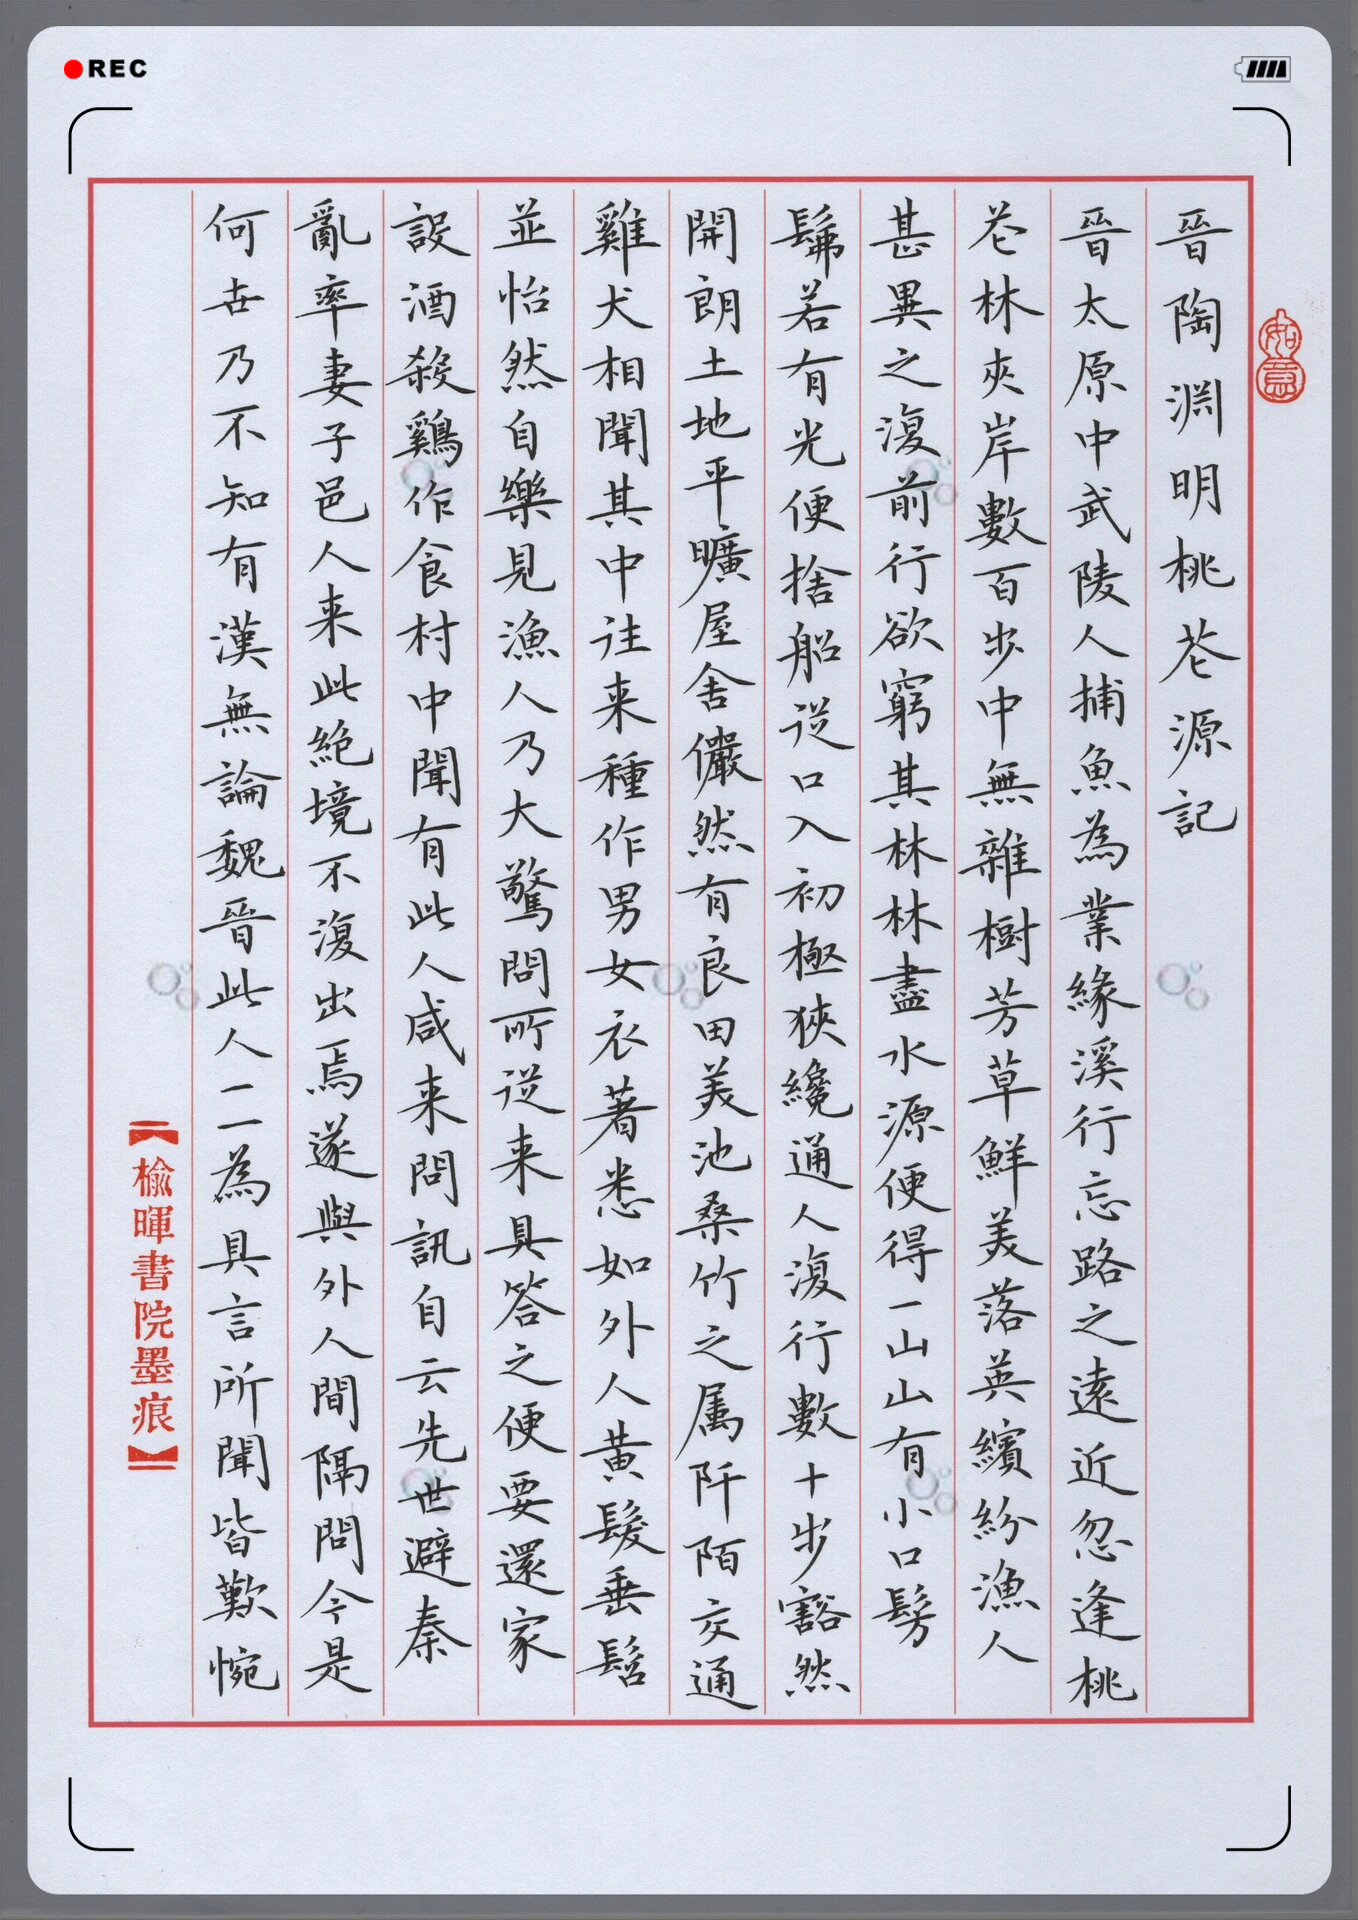 REC
如意
晉陶淵明桃花源記
晉太原中武陵人捕魚為業緣溪行忘路之遠近忽逢桃
花林夾岸數百步中無雜樹芳草鮮美落英繽紛漁人
甚異之復前行欲窮其林林盡水源便得一山山有小口髣
髴若有光便捨船從口入初極狹纔通人復行數十步豁然
開朗土地平曠屋舍儼然有良田美池桑竹之属阡陌交通
雞犬相聞其中往来種作男女衣著悉如外人黃髮垂髫
並怡然自樂見漁人乃大驚問所從来具答之便要還家
設酒殺鷄作食村中聞有此人咸来問訊自云先世避秦
亂率妻子邑人来此絕境不復出焉遂與外人間隔問今是
何世乃不知有漢無論魏晉此人一一為具言所聞皆歎惋
【榆暉書院墨痕】